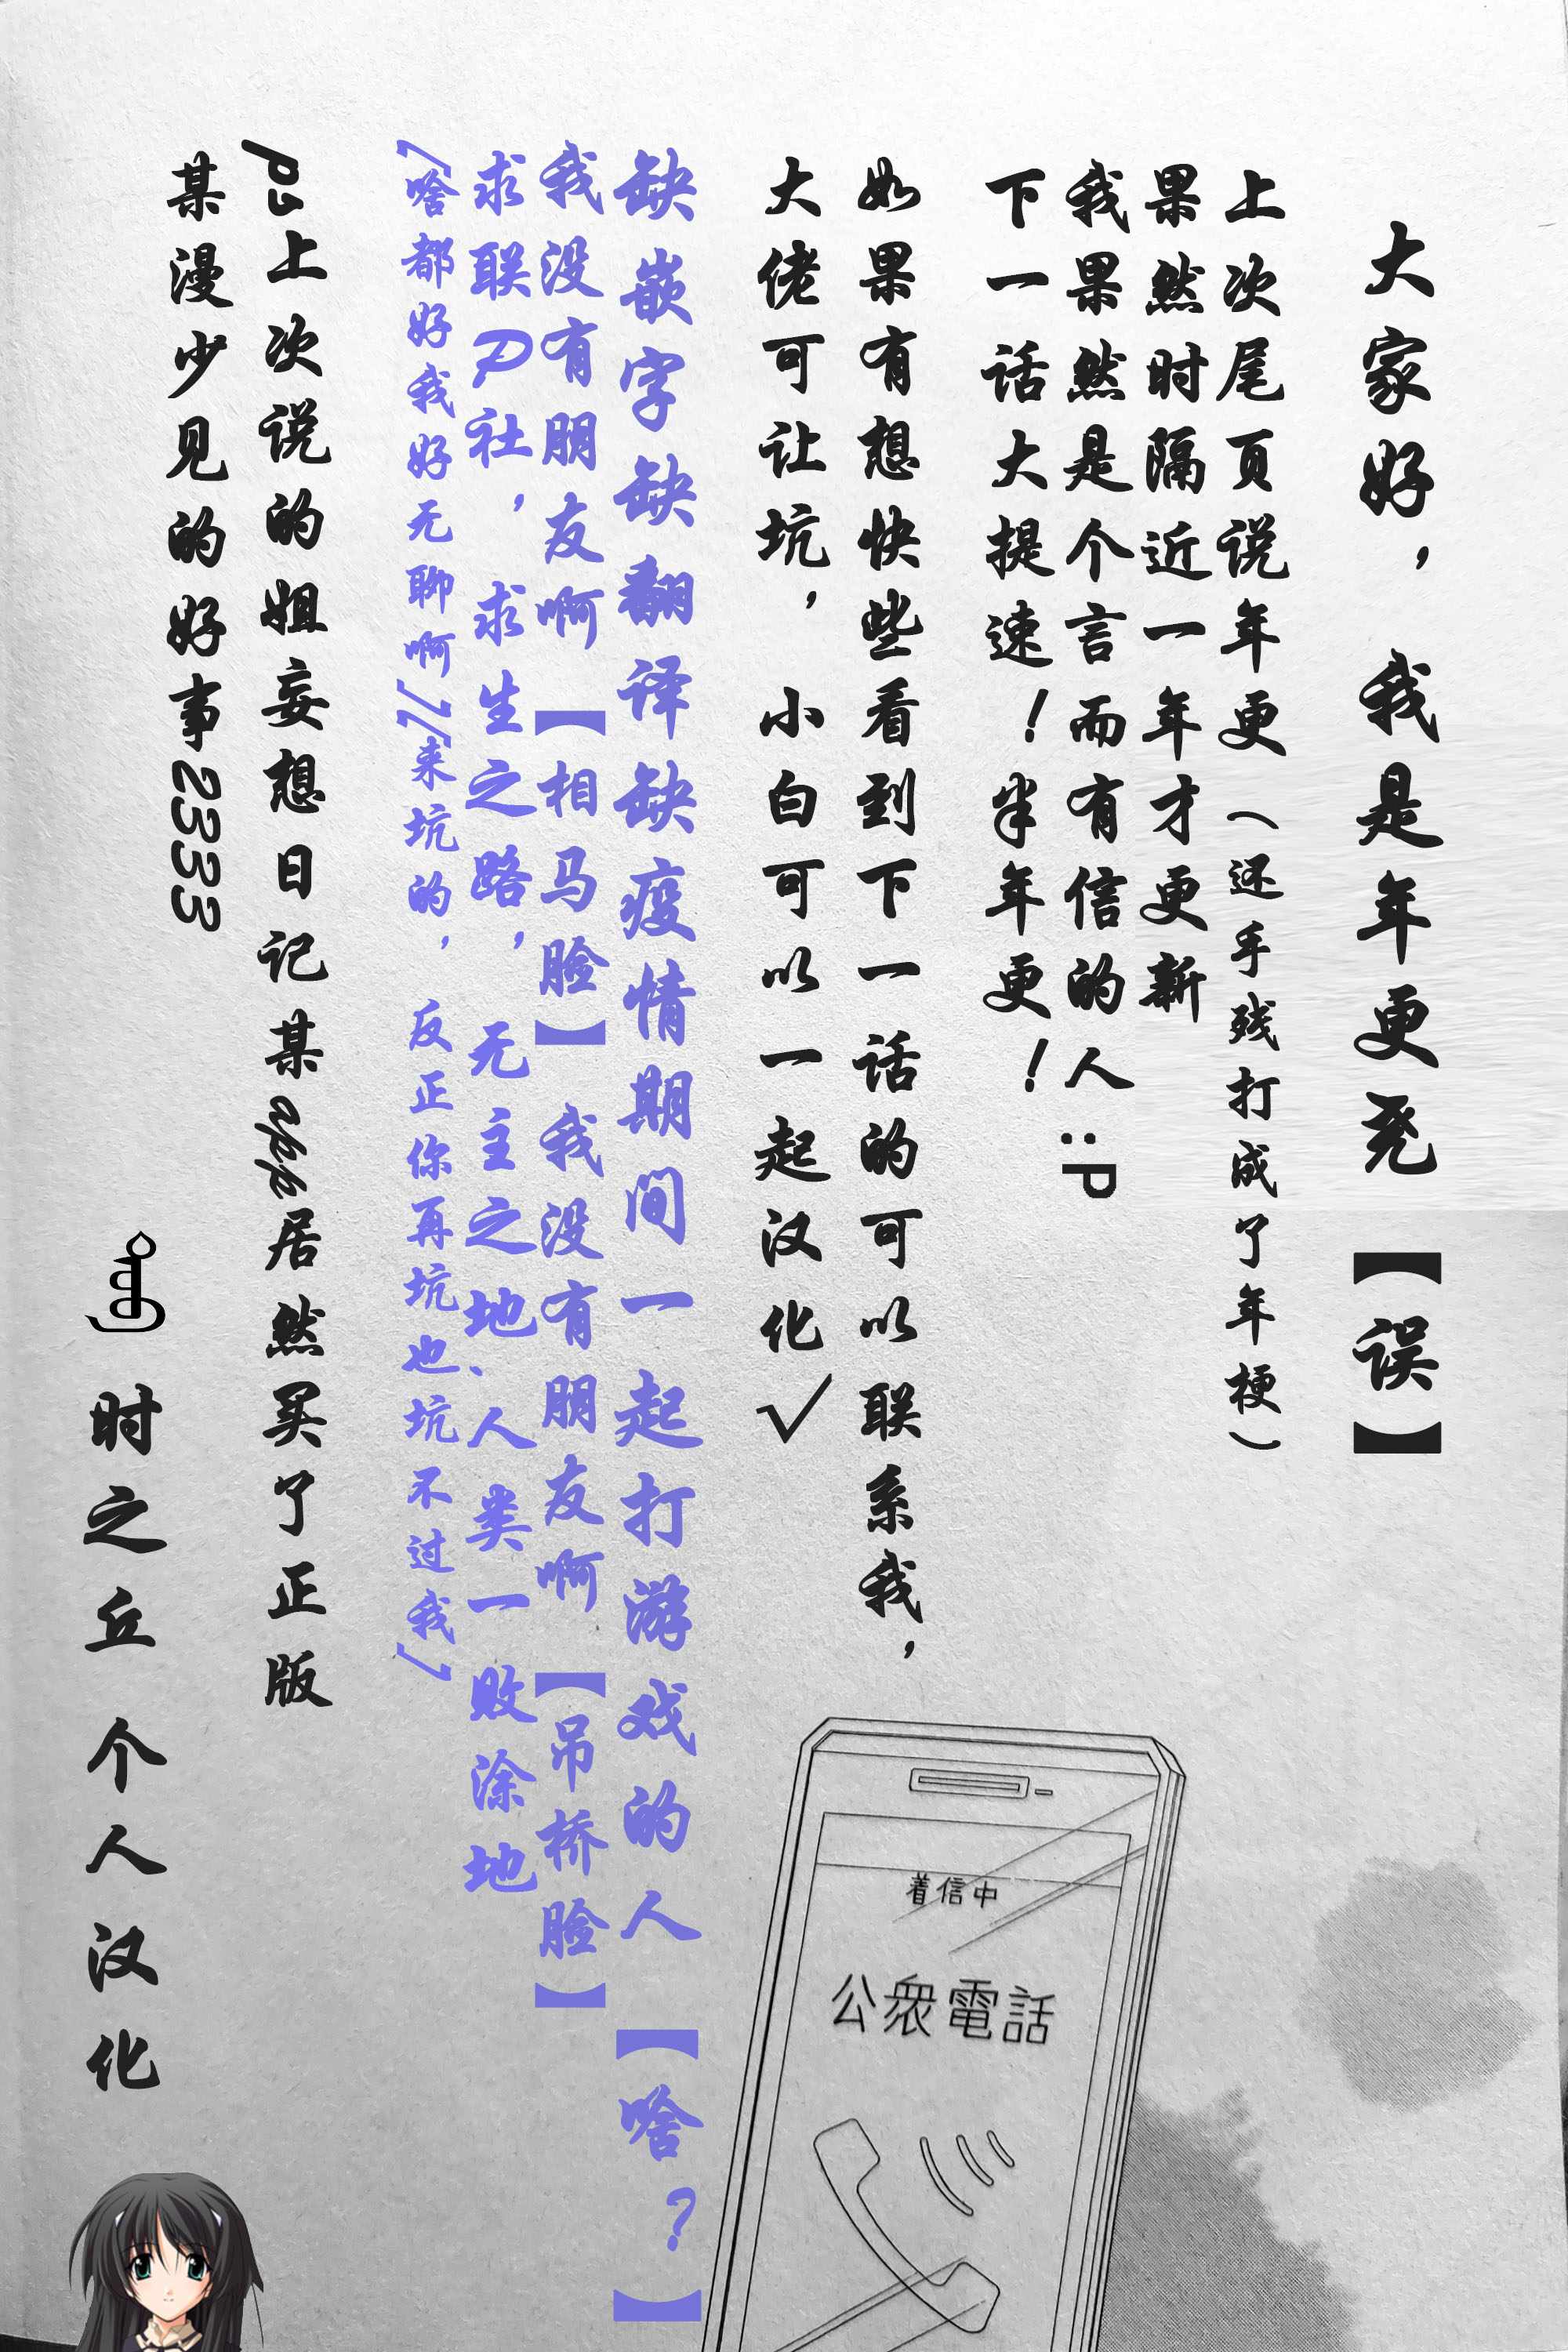 大家好，我是年更尧【误】
上次尾页说年更（还手残打成了年梗）
果然时隔近一年才更新
我果然是个言而有信的人:P
下一话大提速！半年更！
如果有想快些看到下一话的可以联系我，
大佬可让坑，小白可以一起汉化✓
缺嵌字缺翻译缺疫情期间一起打游戏的人【啥？】
我没有朋友啊【相马脸】我没有朋友啊【吊桥脸】
求联P社，求生之路，无主之地、人类一败涂地
(啥都好我好无聊啊)(来坑的，反正你再坑也坑不过我)
ps上次说的姐妄想日记某app居然买了正版
某漫少见的好事2333
时之丘 个人汉化
着信中
公衆電話